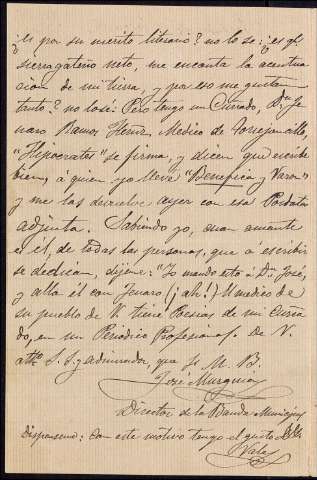 ¿es por su merito literario? no lo se: ¿es q.
sierragateño neto, me encanta la acentua
cion de mi tierra, y por eso me gustan
tanto? no lo sé: Pero tengo un Cuñado, Dn. Je
naro Ramos Hernz. Medico de Torrejoncillo,
"Hipocrates" se firma, y dicen que escribe
bien, á quien yo llevé "Beneficia y Varon"
y me las devuelve ayer con esa Postdata
adjunta. Sabiendo yo, cuan amante
es V, de todas las personas, que á escribir
se dedican, dijeme: "Yo mando esto á Dn. José,
y alla él con Jenaro (¡ah!) El medico de
su pueblo de V. tiene Poesias de mi Cuña
do, en un Periodico Profesional. De V.
atto. S. S. y admirador, que S. M. B.
José Murguia
Director de la Banda Municipal
Dispenseme: con este motivo tengo el gusto de
Vale